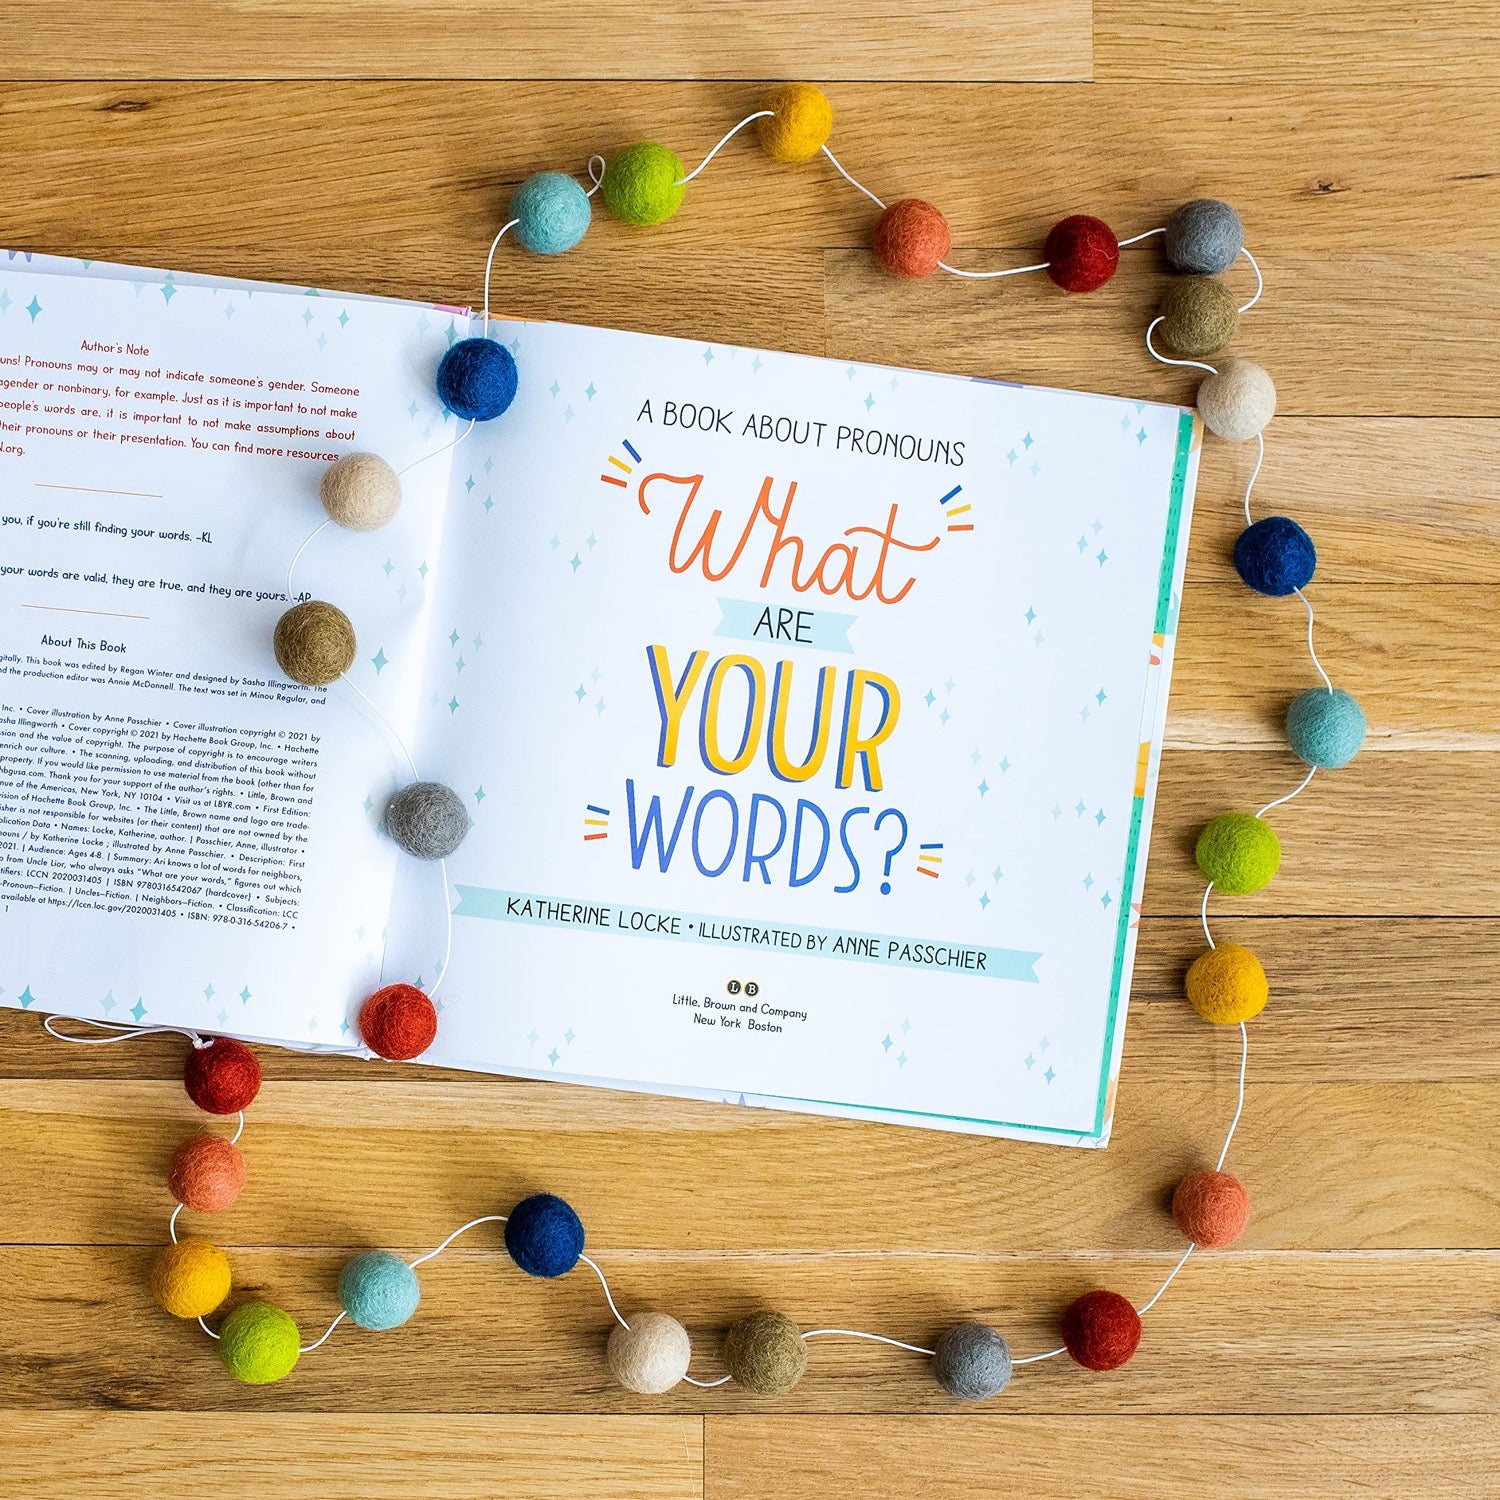 Author's Note
uns! Pronouns may or may not indicate someone's gender. Someone
agender or nonbinary, for example. Just as it is important to not make
people's words are, it is important to not make assumptions about
their pronouns or their presentation. You can find more resources
N.org.
you, if you're still finding your words. -KL
your words are valid, they are true, and they are yours. -AP
About This Book
gitally. This book was edited by Regan Winter and designed by Sasha Illingworth. The
d the production editor was Annie McDonnell. The text was set in Minou Regular, and
Inc. • Cover illustration by Anne Passchier • Cover illustration copyright © 2021 by
asha Illingworth • Cover copyright © 2021 by Hachette Book Group, Inc. • Hachette
ssion and the value of copyright. The purpose of copyright is to encourage writers
enrich our culture. • The scanning, uploading, and distribution of this book without
property. If you would like permission to use material from the book (other than for
hbgusa.com. Thank you for your support of the author's rights. • Little, Brown and
nue of the Americas, New York, NY 10104 • Visit us at LBYR.com • First Edition:
ision of Hachette Book Group, Inc. • The Little, Brown name and logo are trade-
isher is not responsible for websites (or their content) that are not owned by the
blication Data • Names: Locke, Katherine, author. | Passchier, Anne, illustrator •
nouns / by Katherine Locke ; illustrated by Anne Passchier. • Description: First
2021. | Audience: Ages 4-8. | Summary: Ari knows a lot of words for neighbors,
o from Uncle Lior, who always asks "What are your words," figures out which
tifiers: LCCN 2020031405 | ISBN 9780316542067 (hardcover) • Subjects:
-Pronoun—Fiction. | Uncles—Fiction. | Neighbors—Fiction. • Classification: LCC
available at https://lccn.loc.gov/2020031405 • ISBN: 978-0-316-54206-7 •
1
A BOOK ABOUT PRONOUNS
What
ARE
YOUR
WORDS?
KATHERINE LOCKE • ILLUSTRATED BY ANNE PASSCHIER
L B
Little, Brown and Company
New York Boston